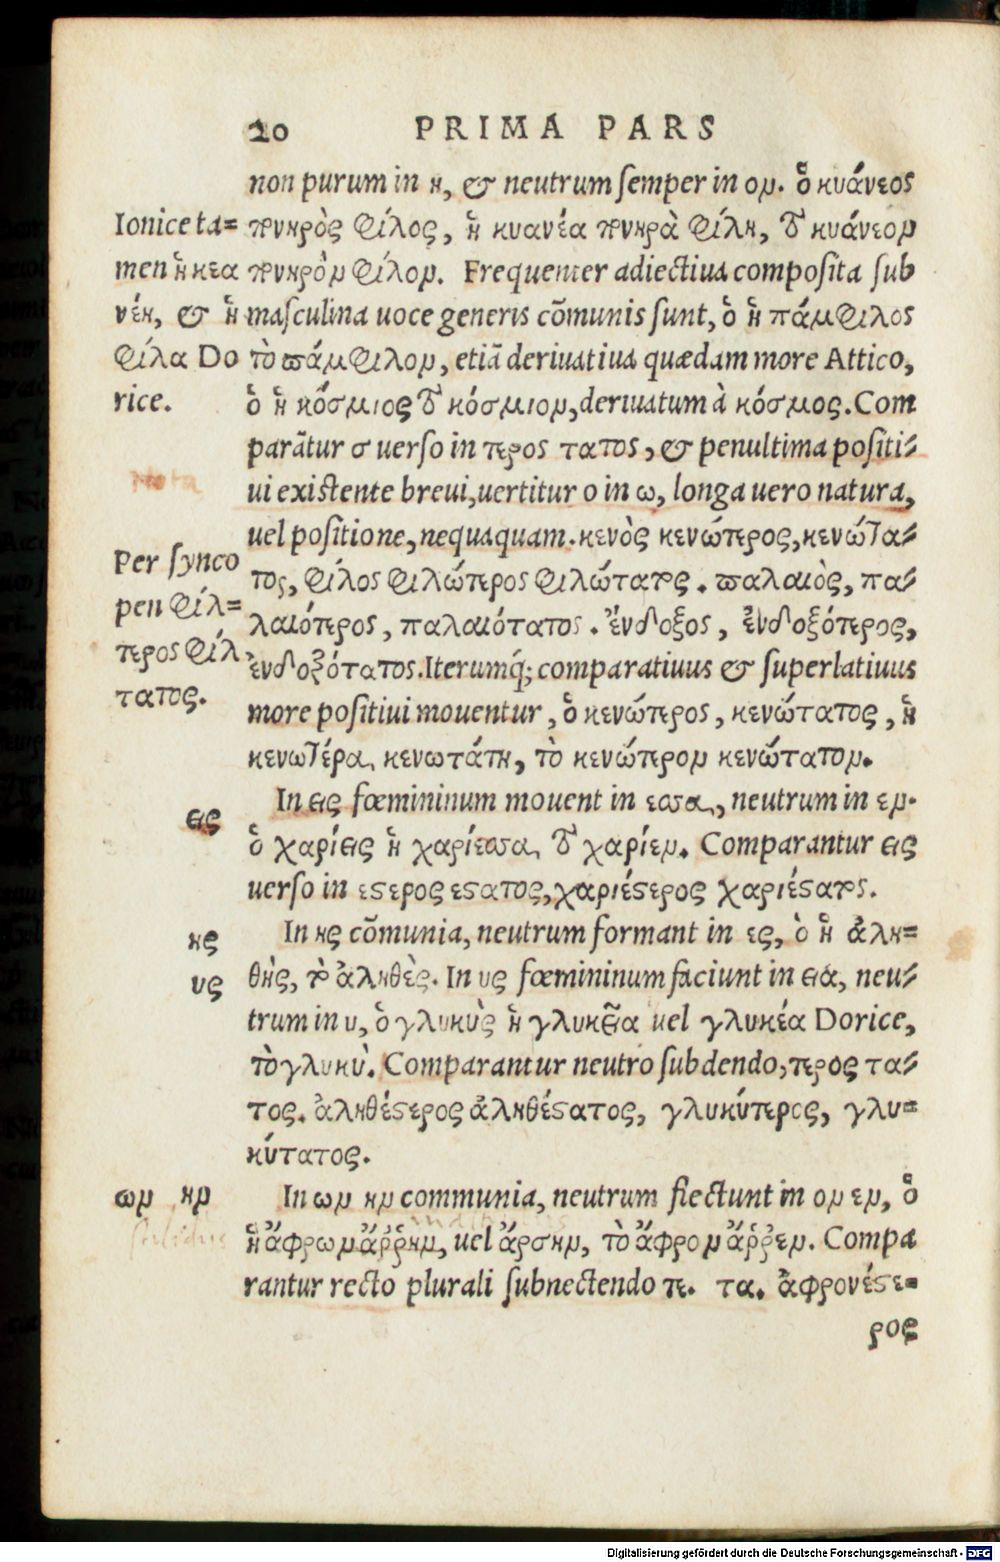 20 PRIMA PARS
non purum in η, & neutrum semper in ομ. ὁ κυάνεος
πονηρὸς φίλος, ἡ κυανέα πονηρὰ φίλη, τὸ κυάνεομ
πονηρὸμ φίλομ. Frequenter adiectiua composita sub
masculina uoce generis cõmunis sunt, ὁ ἡ πάμφιλος
τὸ πάμφιλομ, etiã deriuatiua quædam more Attico,
ὁ ἡ κόσμιος τὸ κόσμιομ, deriuatum à κόσμος. Com
parãtur σ uerso in τερος τατος, & penultima positi⸗
ui existente breui, uertitur ο in ω, longa uero natura,
uel positione, nequaquam. κενὸς κενώτερος, κενώτα⸗
τος, φίλος φιλώτερος φιλώτατος. παλαιὸς, πα⸗
λαιότερος, παλαιότατος. ἔνδοξος, ἐνδοξότερος,
ἐνδοξότατος. Iterumq́; comparatiuus & superlatiuus
more positiui mouentur, ὁ κενώτερος, κενώτατος, ἡ
κενωτέρα, κενωτάτη, τὸ κενώτερομ κενώτατομ.
In εις fœmininum mouent in εσσα, neutrum in εμ.
ὁ χαρίεις ἡ χαρίεσσα, τὸ χαρίεμ. Comparantur εις
uerso in εστερος εστατος, χαριέστερος χαριέστατος.
In ης cõmunia, neutrum formant in ες, ὁ ἡ ἀλη⸗
θὴς, τὸ ἀληθὲς. In υς fœmininum faciunt in εια, neu⸗
trum in υ, ὁ γλυκὺς ἡ γλυκεῖα uel γλυκέα Dorice,
τὸ γλυκὺ. Comparantur neutro subdendo, τερος τα⸗
τος. ἀληθέστερος ἀληθέστατος, γλυκύτερος, γλυ⸗
κύτατος.
In ωμ ημ communia, neutrum flectunt in ομ εμ, ὁ
ἡ ἄφρωμ ἄῤῥημ, uel ἄρσημ, τὸ ἄφρομ ἄῤῥεμ. Compa
rantur recto plurali subnectendo τε. τα. ἀφρονέστε⸗
ρος
Ionice ta⸗
men ἡ κεα
νέη, & ἡ
φίλα Do
rice.
Nota
Per synco
pen φίλ⸗
τερος φίλ
τατος.
εις
ης
υς
ωμ ημ
Digitalisierung gefördert durch die Deutsche Forschungsgemeinschaft - DFG